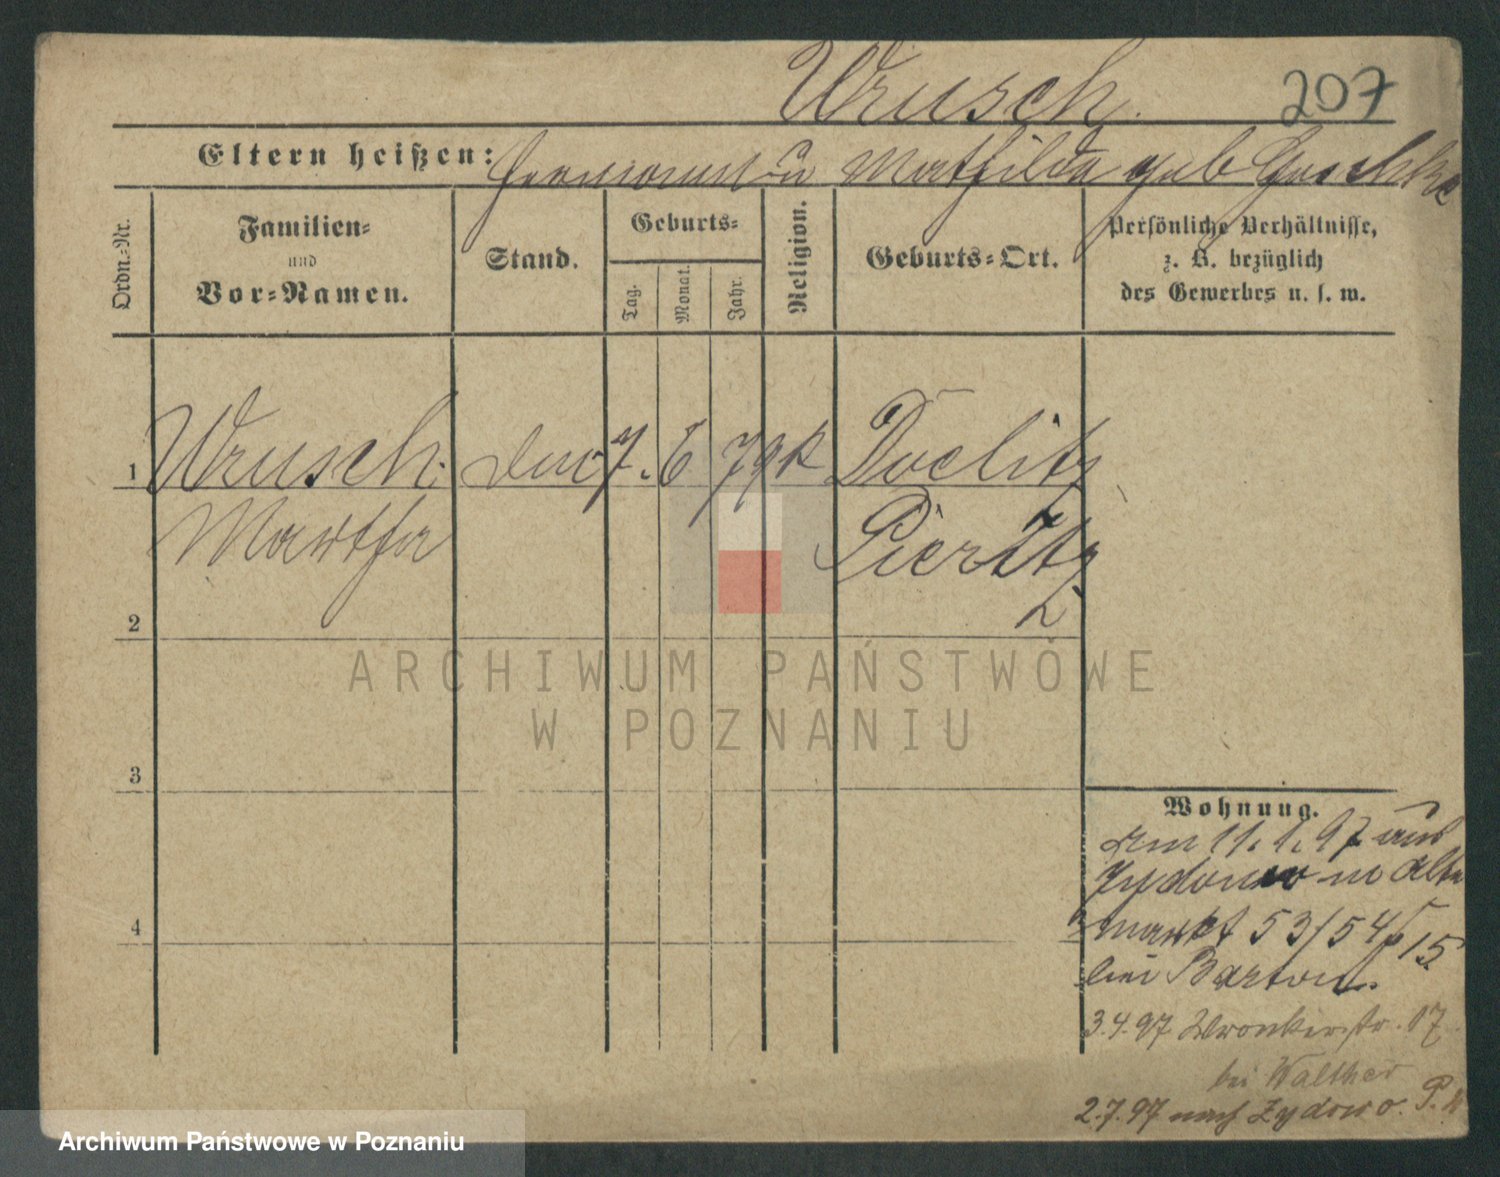 Wrusch.
207
Eltern heißen: Hermann u Mathilde geb
Ordn.-Nr.
Familien-
und
Vor-Namen.
Stand.
Geburts-
Tag.
Monat.
Jahr.
Religion.
Geburts-Ort.
Persönliche Verhältnisse,
z. B. bezüglich
des Gewerbes u. s. w.
1
Wrusch. 7. 6 79 k Doelitz
Martha
2
3
4
ARCHIWUM PAŃSTWOWE
W POZNANIU
Wohnung.
am 11. 1. 97 aus
Zydowo in Alter
markt 53/54
bei
3.4.97 Wronkerstr. 17
bei Walther
2.7.97 nach Zydowo.
Archiwum Państwowe w Poznaniu